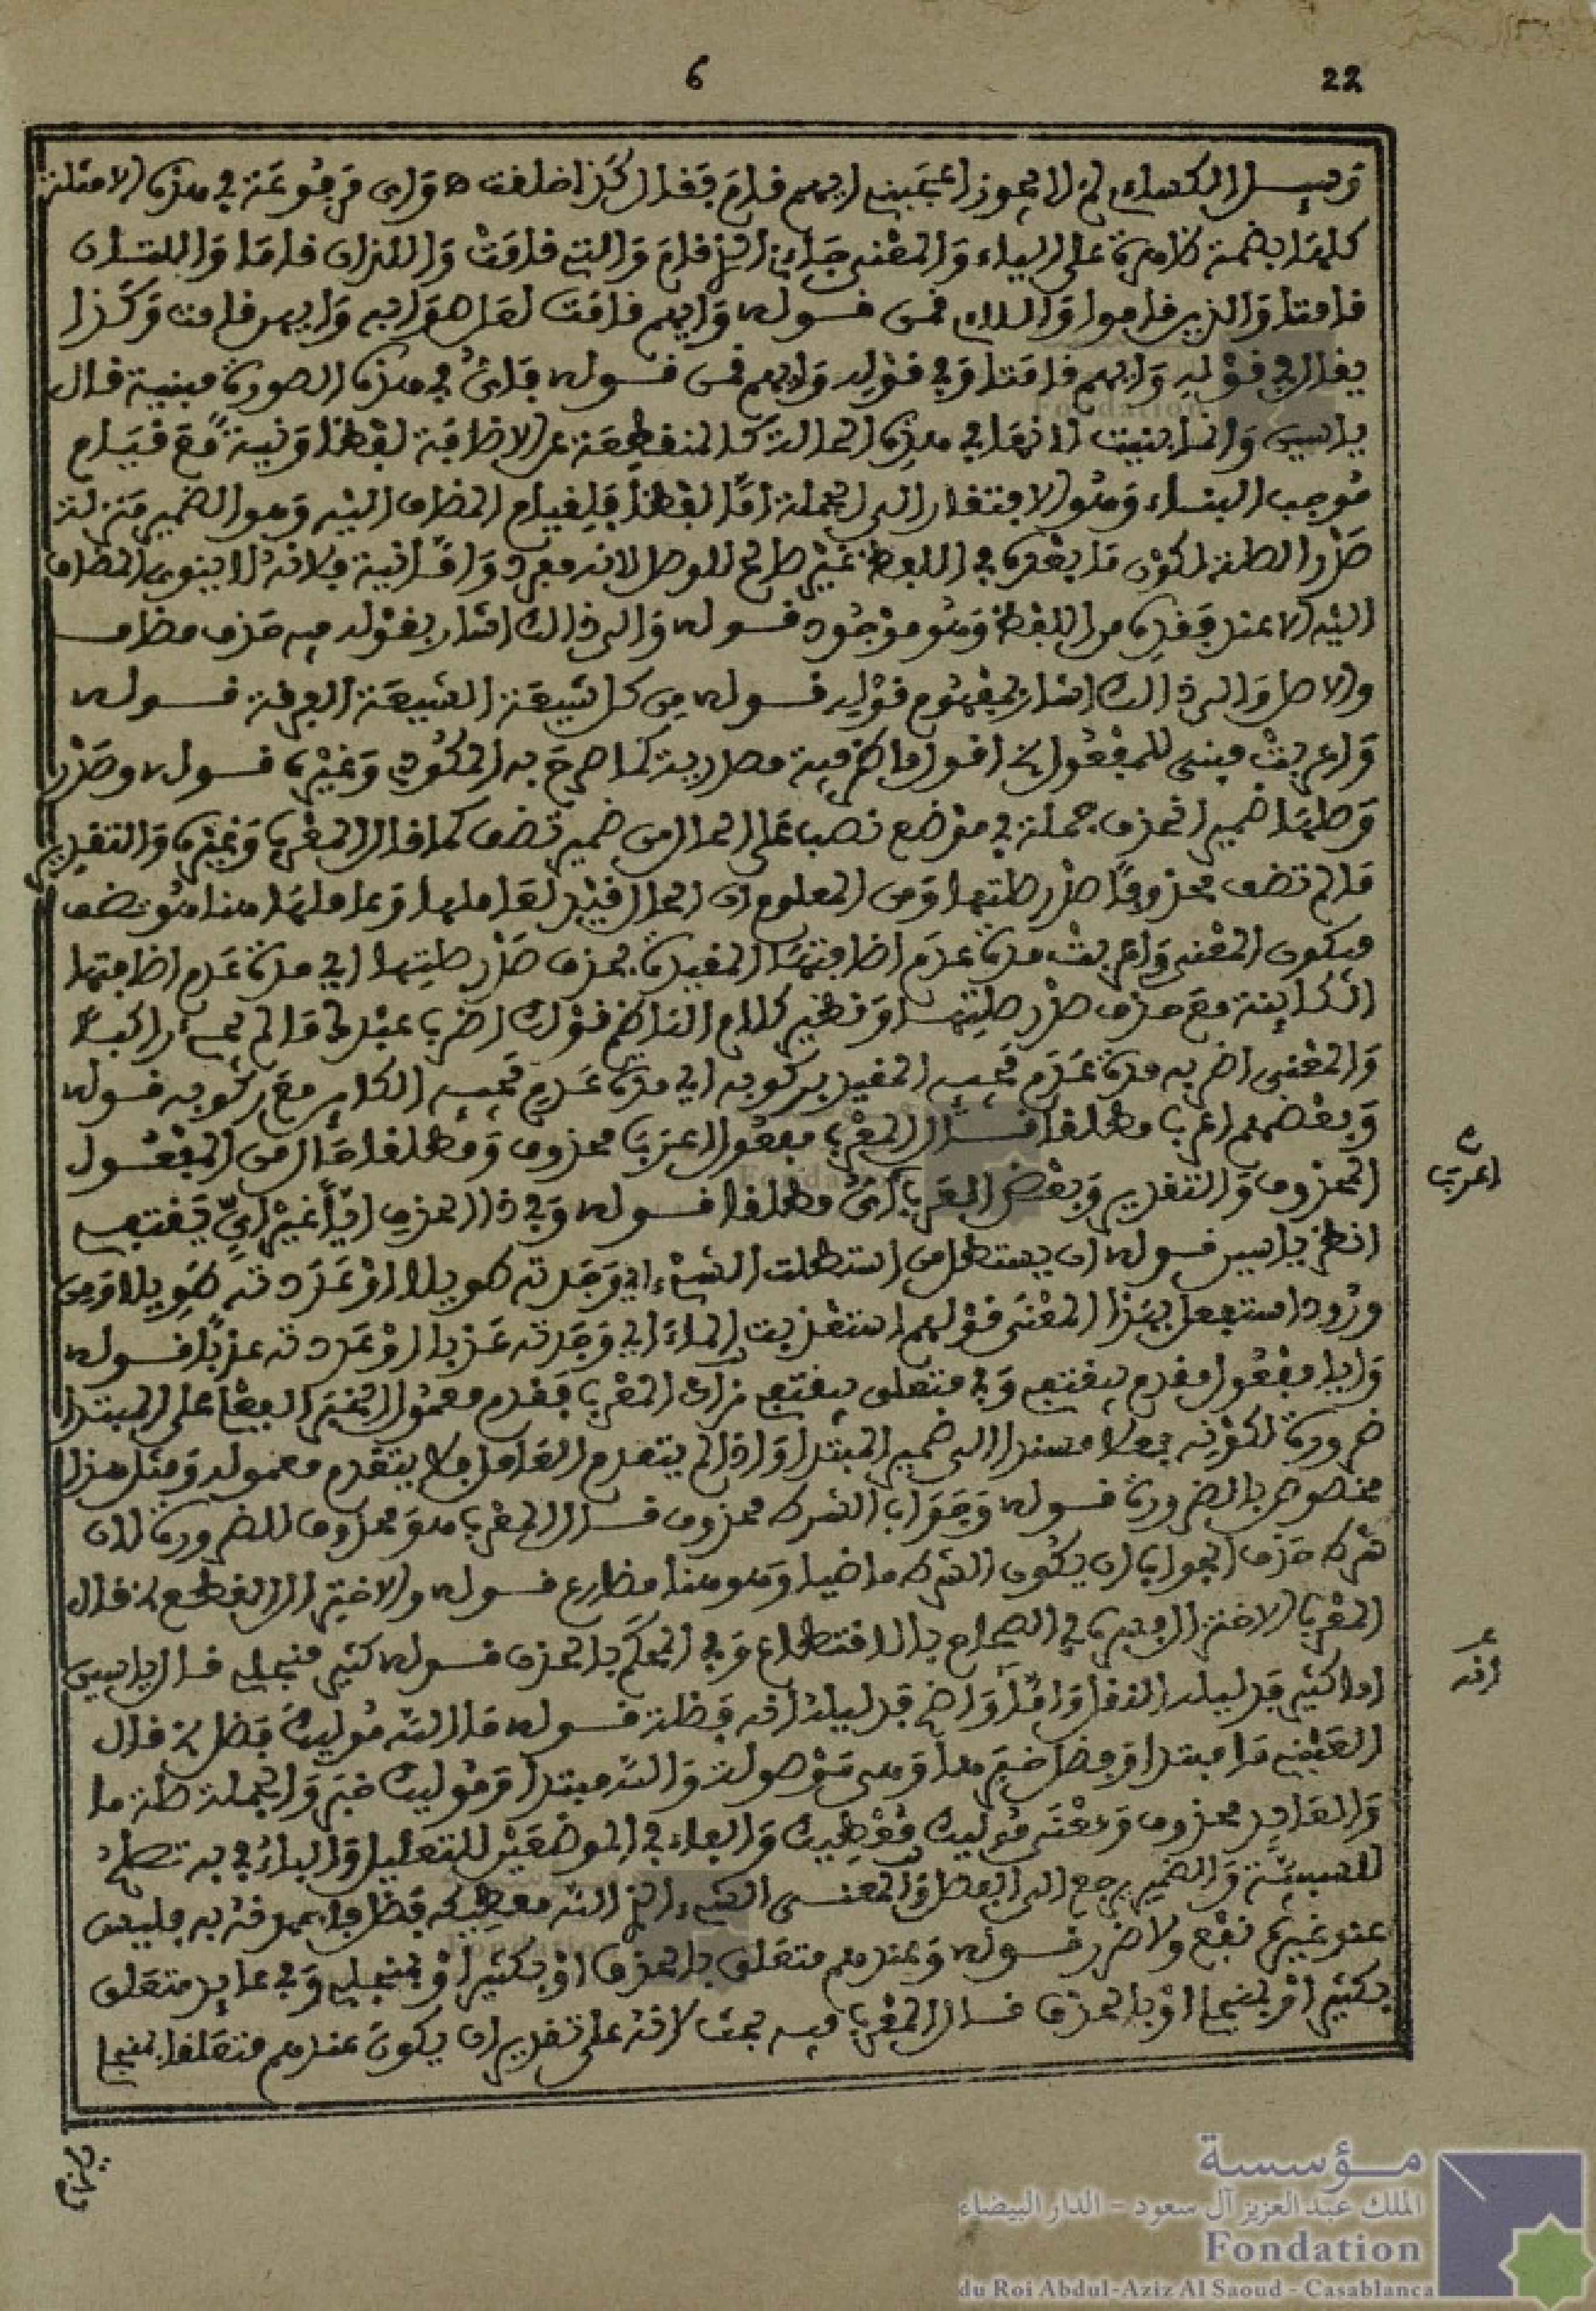 6
22
وسئل الكسائي لم لا يجوز اعجبني ايهم قام فقال كذا خلقت ه واى مرفوعة في هذه الامثلة
كلها بضمة ظاهرة على الياء والمعنى جاءني الذي قام والتي قامت واللذان قاما واللتان
قامتا والذين قاموا واللاءي قمن قوله وايهم قامت لعل هوابه وايهن قامت وكذا
يقال في قوله وايهم قامتا وفي قوله وايهم قمن قوله فائ في هذه الصورة مبنية قال
ياسين وانما بنيت لانها في هذه الحالة كالمنقطعة عن الاضافة لفظا ونية مع قيام
موجب البناء وهو الافتقار الى الجملة اما لفظا فلقيام المضاف اليه وهو الضمير منزلة
صدر الصلة لكون ما بعده في اللفظ غير صالح للوصل لانه مفرد واما نية فلانه لا ينوى المضاف
اليه الا عند فقده من اللفظ وهو موجود قوله والى ذالك اشار بقوله فيه حذف مضاف
والاصل والى ذالك اشار بمفهوم قوله قوله من كل شيعة الشيعة الفرقة قوله
واعربت مبني للمفعول الخ اقول ما ظرفية مصدرية كما صرح به المكودي وغيره قوله وصدر
وصلها ضمير انحذف جملة في موضع نصب على الحال من ضمير تضف كما قال المعرب وغيره والتقدير
ما لم تضف محذوفا صدر صلتها ومن المعلوم ان الحال قيد لعاملها وعاملها هنا هو تضف
فيكون المعنى واعربت مدة عدم اضافتها المقيدة بحذف صدر صلتها اي مدة عدم اضافتها
الكاينة مع حذف صدر صلتها ونظير كلام الناظم قولك اضرب عبدك ما لم يجيء راكبا
والمعنى اضربه مدة عدم مجيئه المقيد بركوبه اي مدة عدم مجيئه الكاين مع ركوبه قوله
وبعضهم اعرب مطلقا قال المعرب مفعول اعرب محذوف ومطلقا حال من المفعول
اعرب
المحذوف والتقدير وبعض العرب اعرب اي مطلقا قوله وفي ذا الحذف ايا غير اي يقتفي
انظر ياسين قوله ان يستطل من استطلت الشيء اي وجدته طويلا او عددته طويلا ومن
ورود استفعل بهذا المعنى قولهم استعذبت الماء اي وجدته عذبا او عددته عذبا قوله
وايا مفعول مقدم بيقتفي وفي متعلق بيقتفي زاد المعرب فقدم معمول الخبر الفعلي على المبتدا
ضرورة لكونه فعلا مسندا الى ضمير المبتدا واذا لم يتقدم العامل فلا يتقدم معموله ومثل هذا
مخصوص بالضرورة قوله وجواب الشرط محذوف قال المعرب هو محذوف للضرورة لان
شرط حذف الجواب ان يكون الشرط ماضيا وهو هنا مضارع قوله والاختزال القطع الخ قال
المعرب الاختزال فسره في الصحاح بالاقتطاع وفي المحكم بالحذف قوله كثير منجلي قال ياسين
اما كثير فدليله النقل واما واضح فدليله انه فضلة قوله ما الله موليك فضل الخ قال
انه
العيني ما مبتدا وفضل خبره وهي موصولة والله مبتدا وموليك خبره والجملة صلة ما
والعايد محذوف ومعنى موليك معطيك والفاء في الموضعين للتعليل والباء في به تصلح
للسببية والضمير يرجع الى الفضل والمعنى الشيء الذي الله معطيكه فضل فاحمدنه به فليس
عند غيره نفع ولا ضرر قوله وعندهم متعلق بالحذف او بكثير او بمنجلي وفي عايد متعلق
بكثير او بمنجلي او بالحذف قال المعرب فيه بحث لانه على تقدير ان يكون عندهم متعلقا بمنجلي
مؤسسة
الملك عبد العزيز آل سعود - الدار البيضاء
Fondation
du Roi Abdul-Aziz Al Saoud - Casablanca